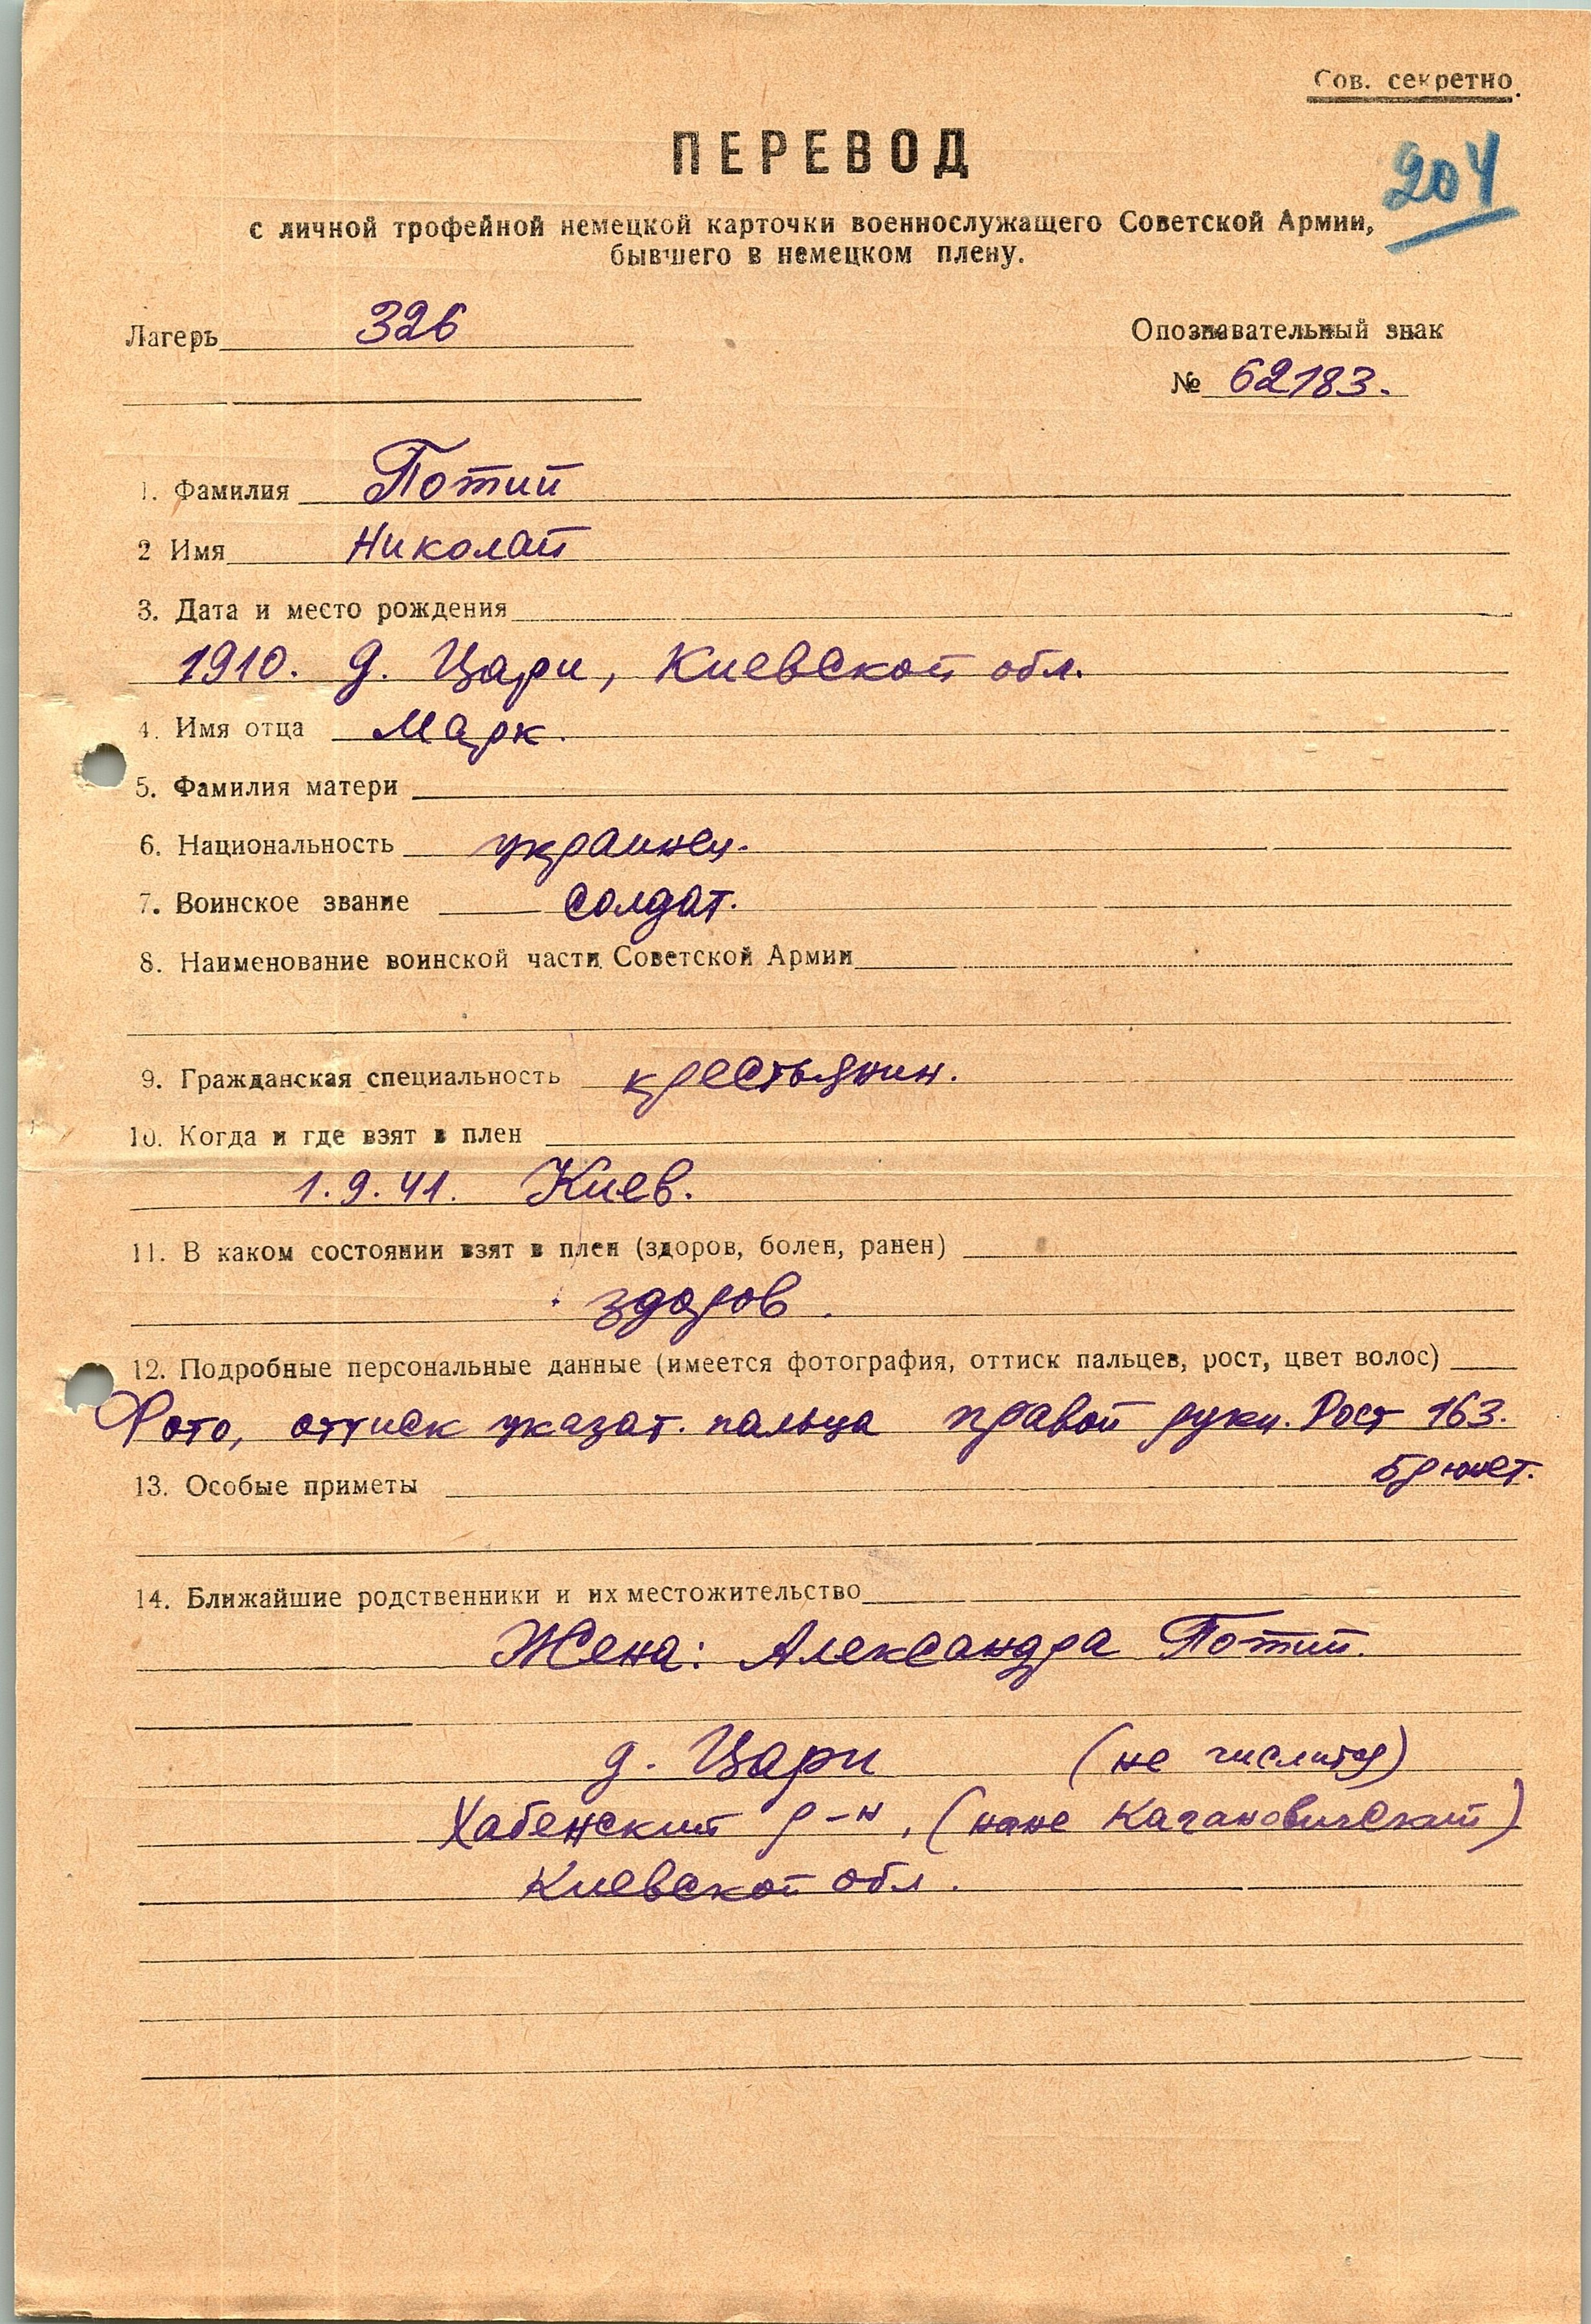 Сов. секретно.
ПЕРЕВОД
204
с личной трофейной немецкой карточки военнослужащего Советской Армии,
бывшего в немецком плену.
Лагерь 326
Опознавательный знак
№ 62183.
1. Фамилия Потий
2 Имя Николай
3. Дата и место рождения
1910. д. Цари, Киевской обл.
4. Имя отца Марк.
5. Фамилия матери
6. Национальность украинец.
7. Воинское звание солдат.
8. Наименование воинской части Советской Армии
9. Гражданская специальность крестьянин.
10. Когда и где взят в плен
1.9.41. Киев.
11. В каком состоянии взят в плен (здоров, болен, ранен)
здоров.
12. Подробные персональные данные (имеется фотография, оттиск пальцев, рост, цвет волос)
Фото, оттиск указат. пальца правой руки. Рост 163.
брюнет.
13. Особые приметы
14. Ближайшие родственники и их местожительство
Жена: Александра Потий.
д. Цари (не числится)
Хабенский р-н, (ныне Кагановичский)
Киевской обл.